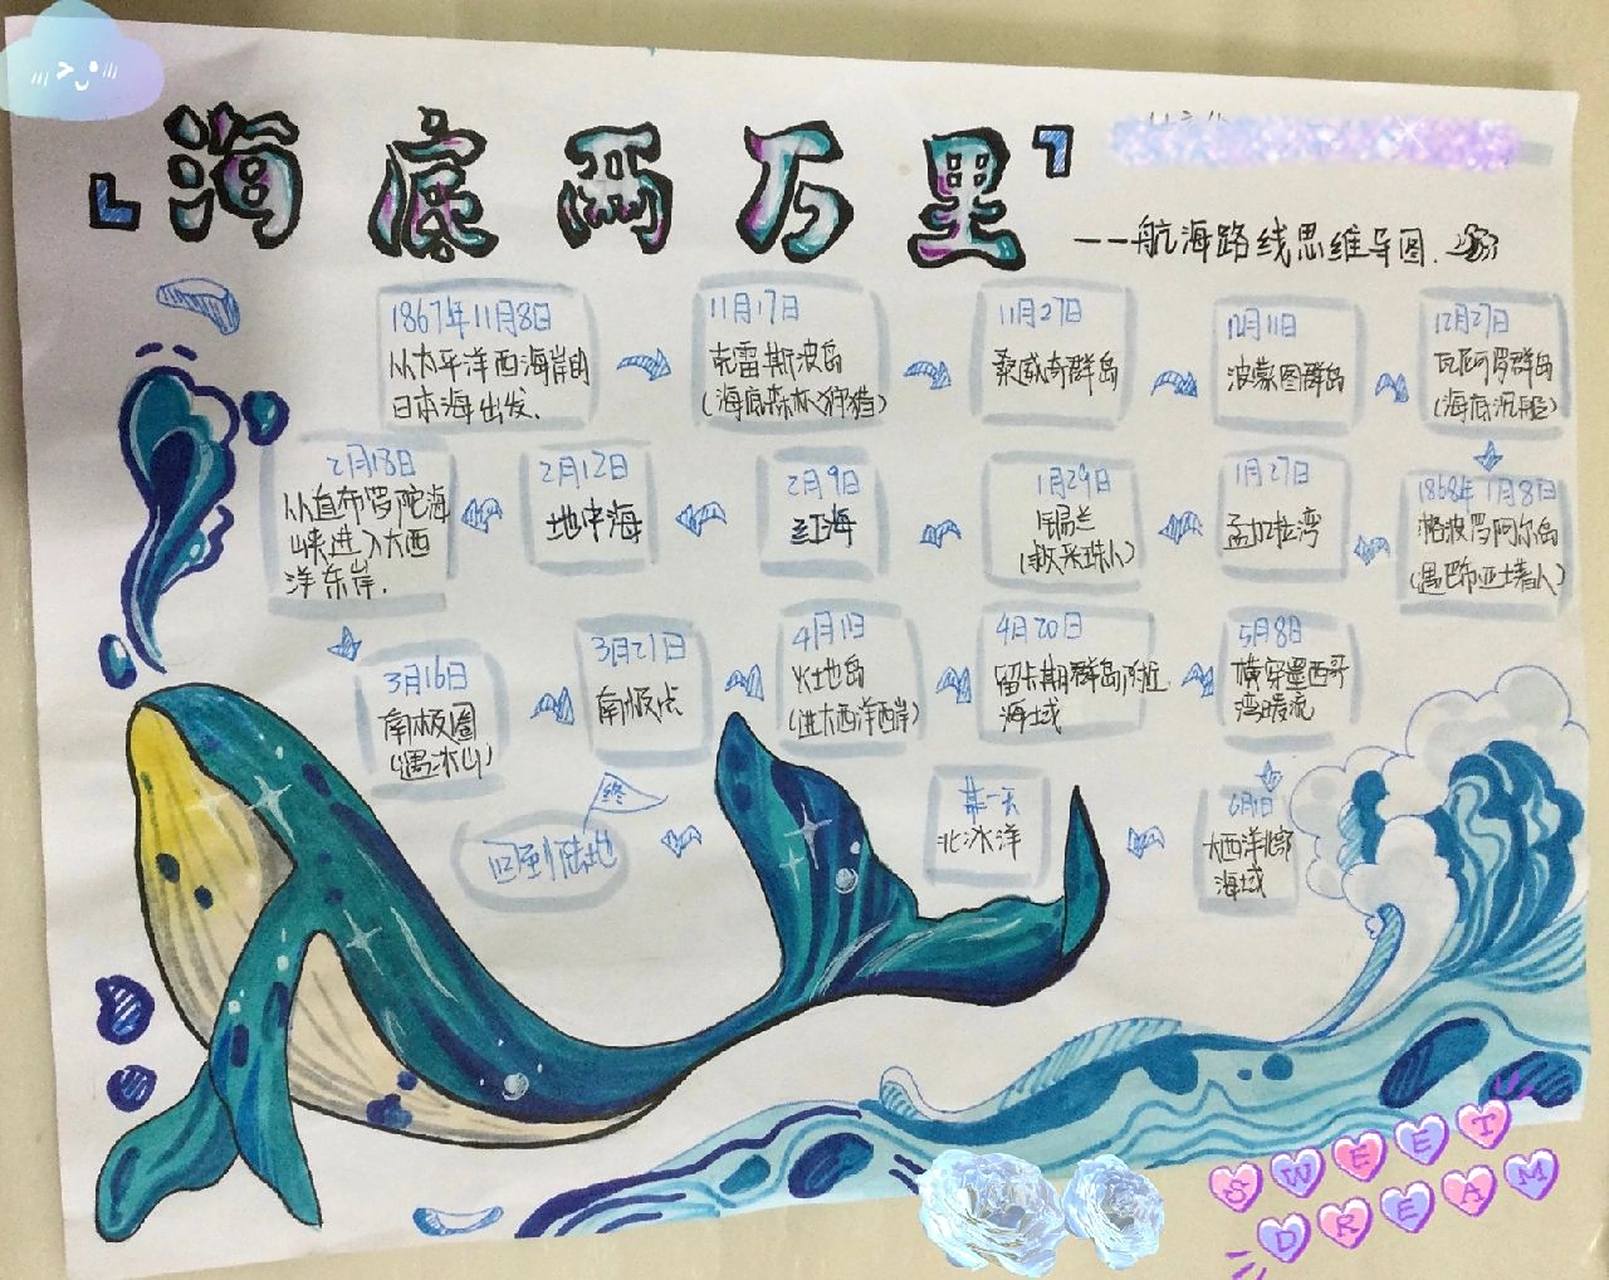 海底两万里
——航海路线思维导图.
1867年11月8日
从太平洋西海岸的
日本海出发.
11月17日
克雷斯波岛
(海底森林狩猎)
11月27日
桑威奇群岛
12月11日
波蒙图群岛
12月27日
瓦尼可罗群岛
(海底沉船)
1868年1月8日
格波罗阿尔岛
(遇巴布亚土著人)
1月27日
孟加拉湾
1月29日
锡兰
(救采珠人)
2月9日
红海
2月12日
地中海
2月18日
从直布罗陀海
峡进入大西
洋东岸.
3月16日
南极圈
(遇冰山)
3月21日
南极点
4月1日
火地岛
(进大西洋西岸)
4月20日
留卡斯群岛附近
海域
5月8日
横穿墨西哥
湾暖流
6月1日
大西洋北部
海域
某一天
北冰洋
终
回到陆地
SWEET
DREAM